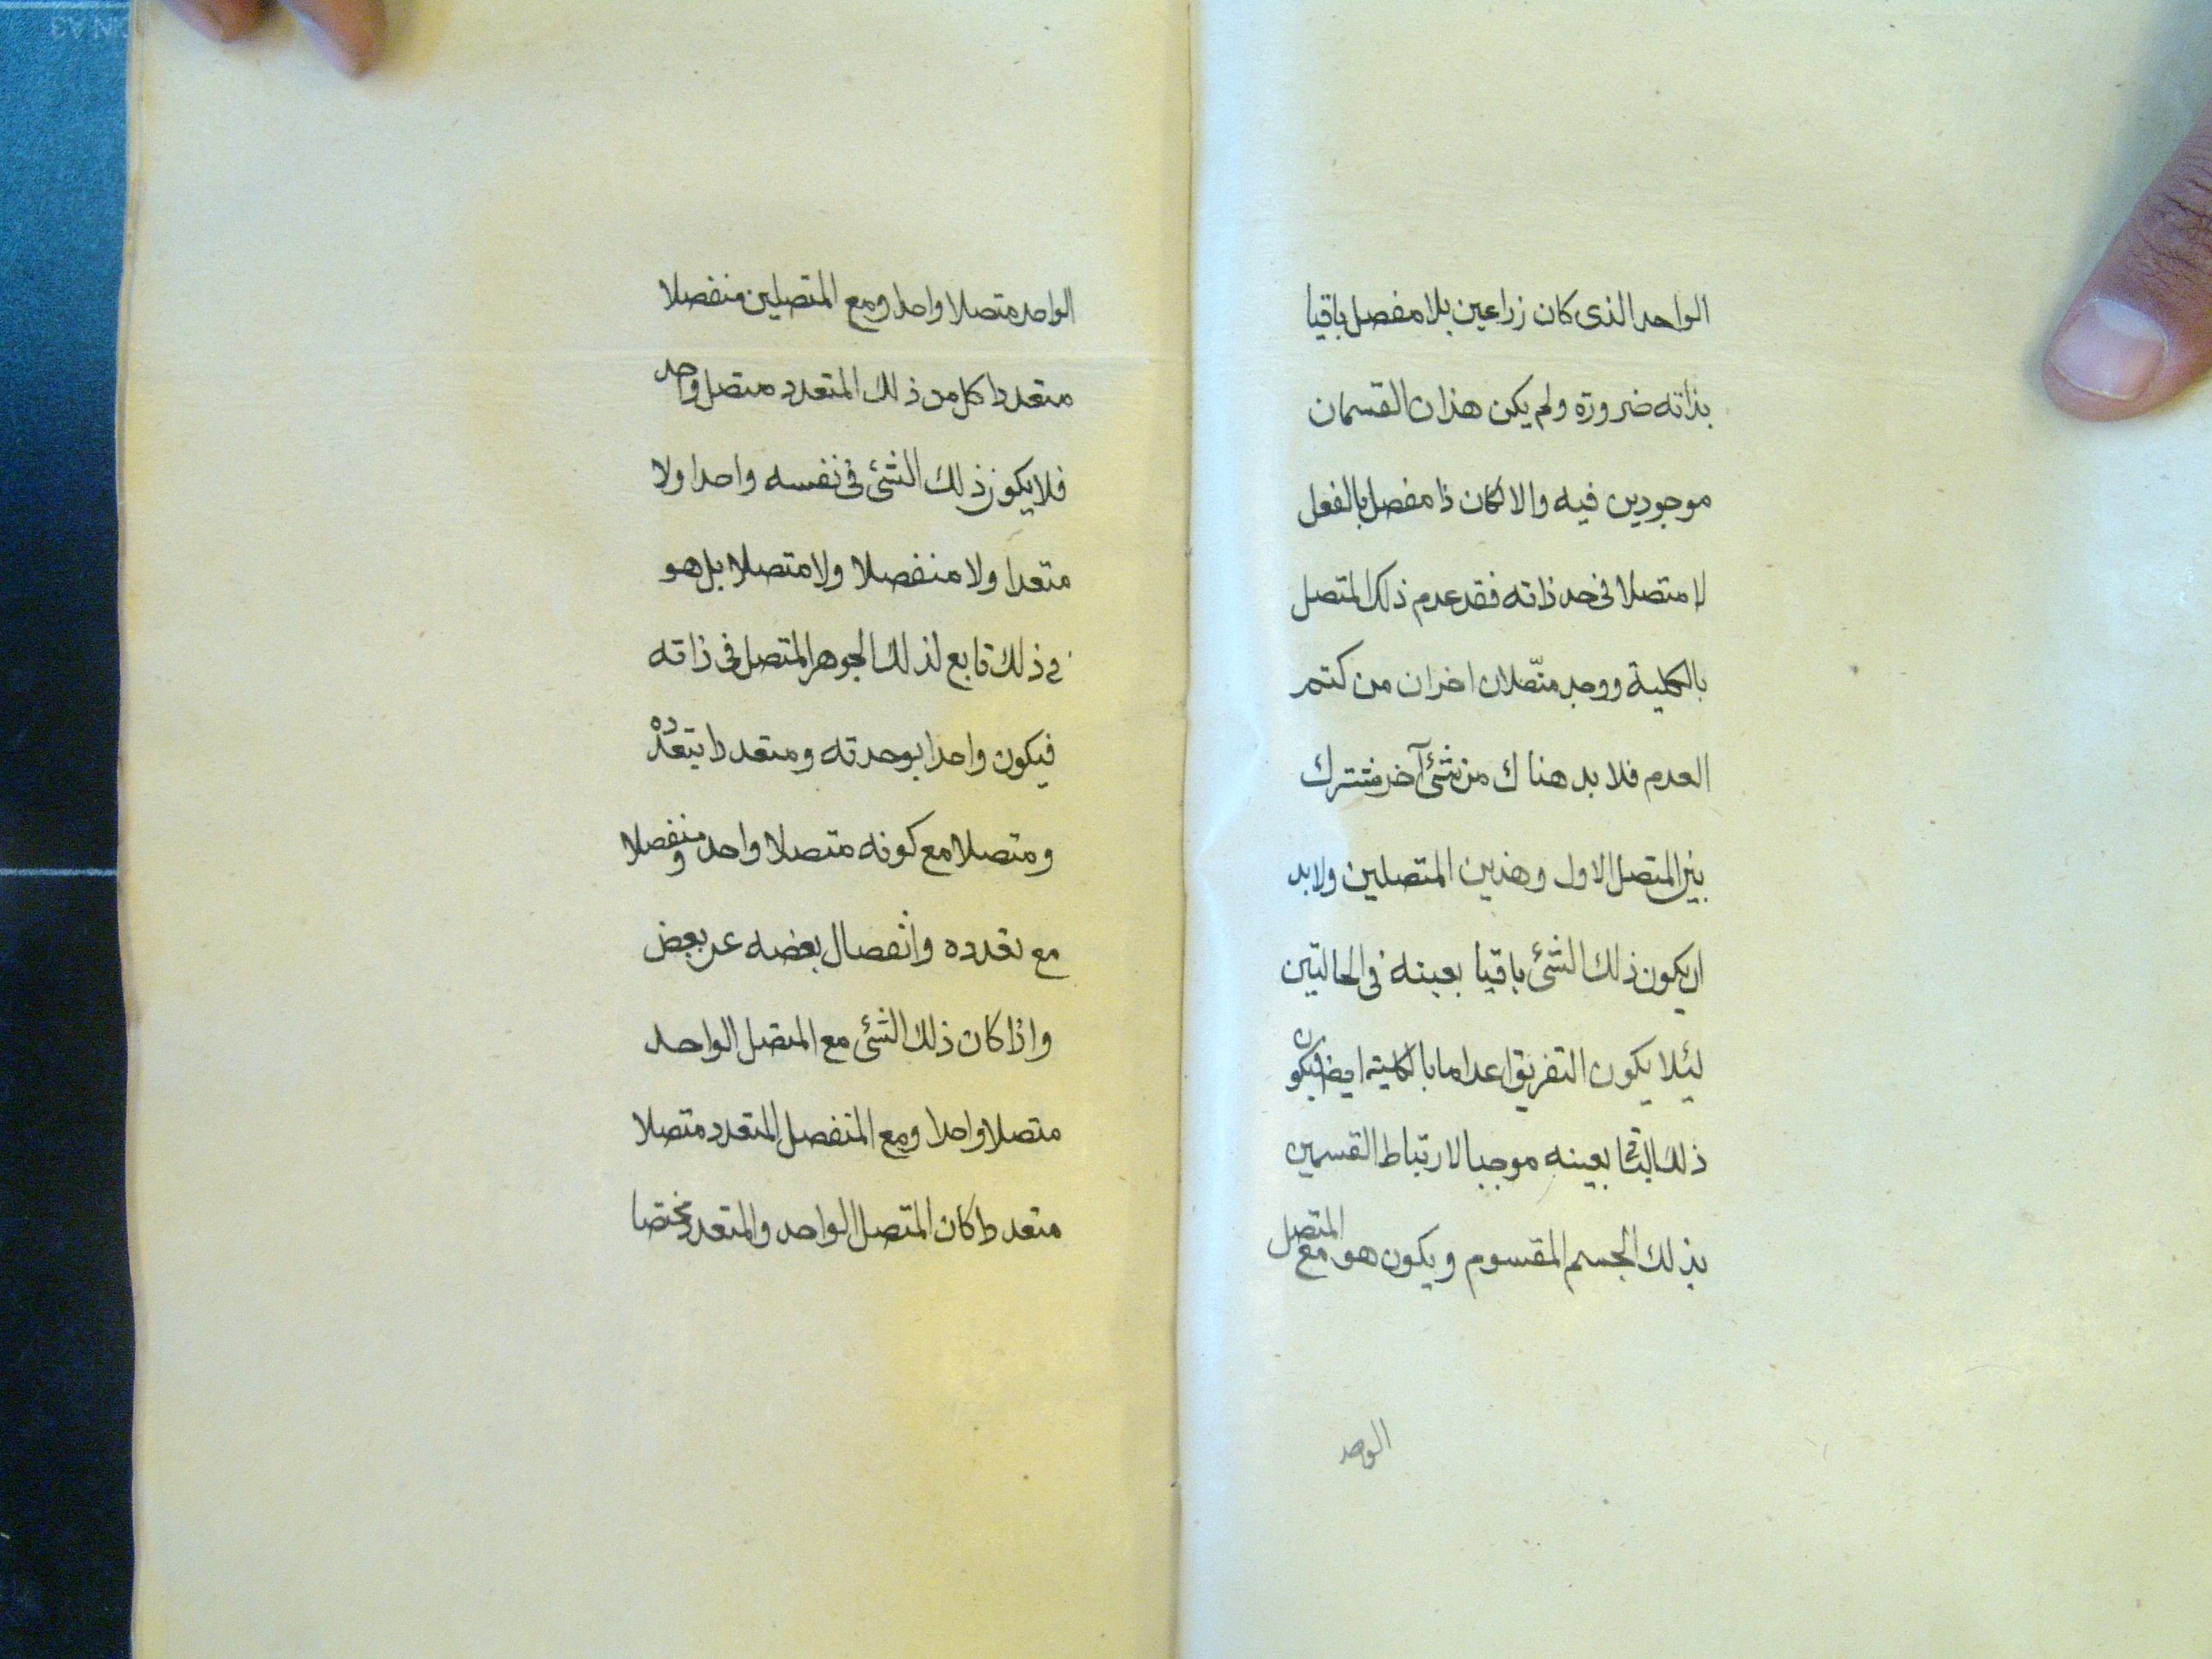 الواحد الذى كان زراعين بلا مفصل باقيا
بذاته ضرورة ولم يكن هذان القسمان
موجودين فيه والا لكان ذا مفصل بالفعل
لا متصلا فى حد ذاته فقد عدم ذلك المتصل
بالكلية ووجد متّصلان اخران من كتم
العدم فلا بد هناك من شئ آخر مشترك
بين المتصل الاول وهذين المتصلين ولا بد
ان يكون ذلك الشئ باقيا بعينه فى الحالتين
لئلا يكون التفريق اعداما بالكلية ايضا فيكون
ذلك الباقى بعينه موجبا لارتباط القسمين
بذلك الجسم المقسوم ويكون هو مع المتصل
الواحد
الواحد متصلا واحدا ومع المتصلين منفصلا
متعددا كل من ذلك المتعدد متصل واحد
فلا يكون ذلك الشئ فى نفسه واحدا ولا
متعدا ولا منفصلا ولا متصلا بل هو
فى ذلك تابع لذلك الجوهر المتصل فى ذاته
فيكون واحدا بوحدته ومتعددا بتعدده
ومتصلا مع كونه متصلا واحد ومنفصلا
مع تعدده وانفصال بعضه عن بعض
واذا كان ذلك الشئ مع المتصل الواحد
متصلا واحدا ومع المنفصل المتعدد متصلا
متعددا كان المتصل الواحد والمتعدد مختصا